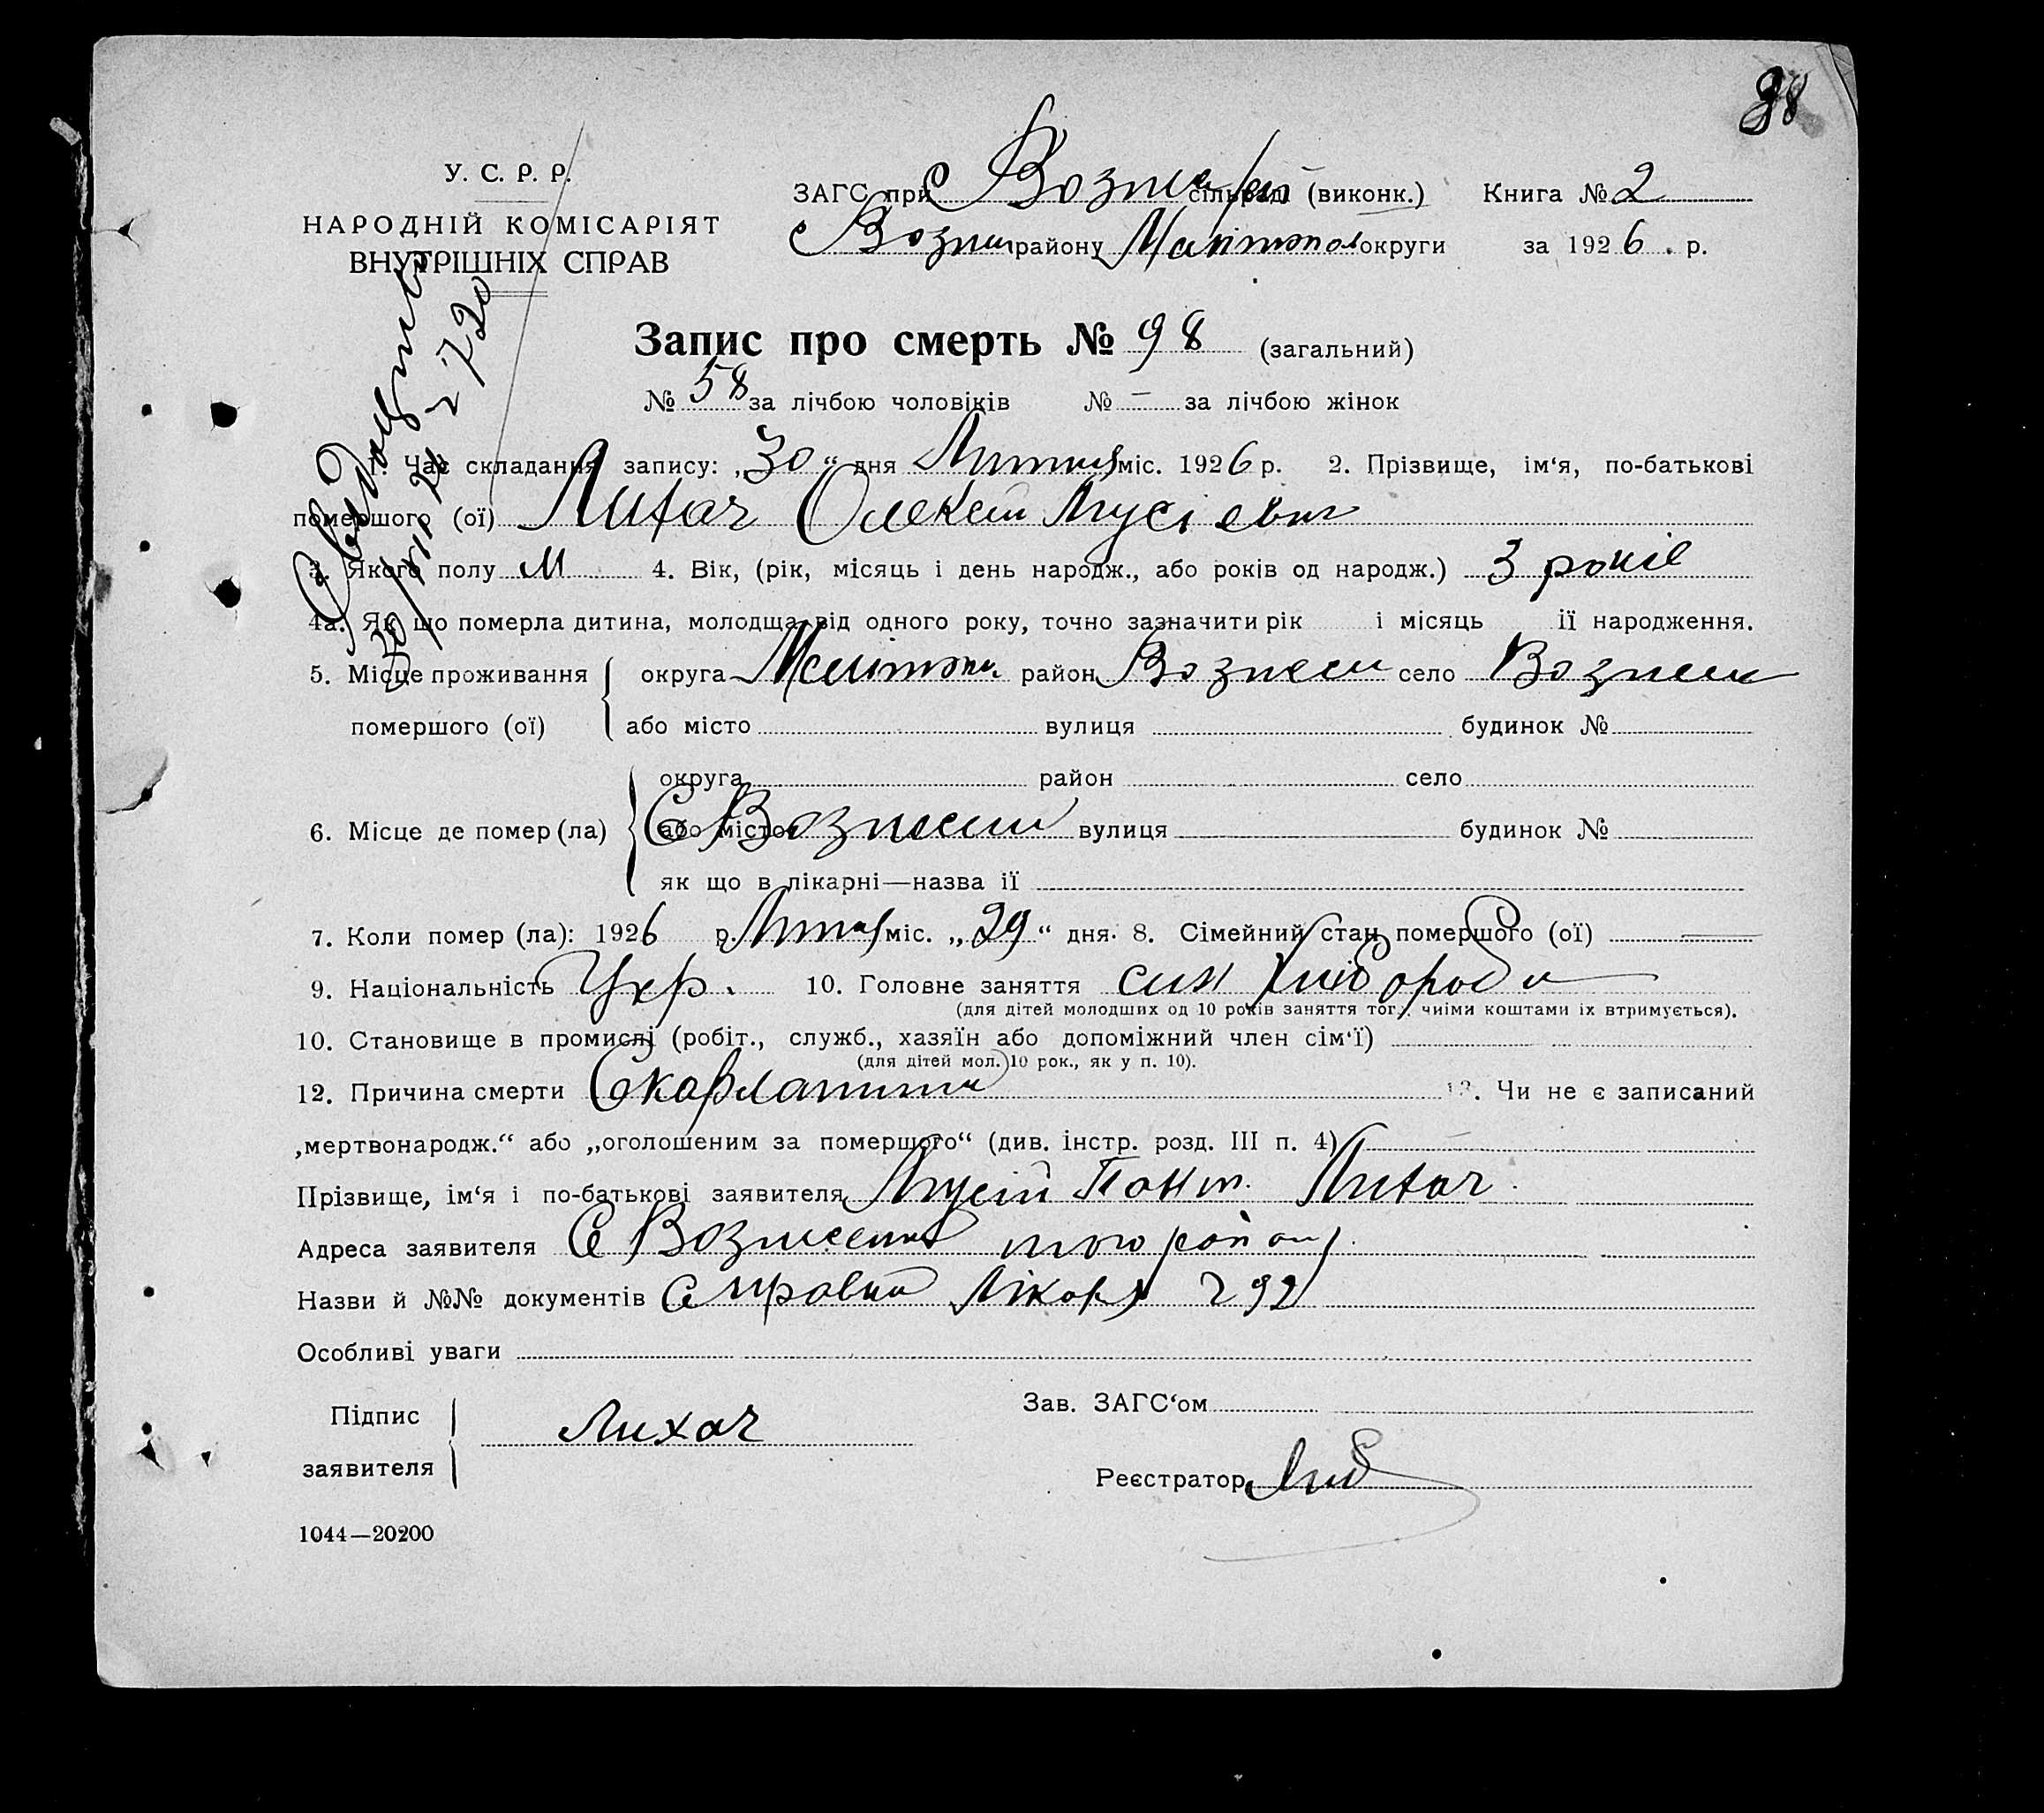 98
У. С. Р. Р.
НАРОДНІЙ КОМІСАРІЯТ
ВНУТРІШНІХ СПРАВ
ЗАГС при С Вознес сільраді (виконк.) Книга № 2
Вознес району Мелітопол округи за 1926 р.
Запис про смерть № 98 (загальний)
№ 58 за лічбою чоловіків № – за лічбою жінок
1. Час складання запису: „30“ дня Липня міс. 1926 р. 2. Прізвище, ім‘я, по-батькові
помершого (ої) Лихач Олексій Мусієвич
3. Якого полу М 4. Вік, (рік, місяць і день народж., або років од народж.) 3 років
4а. Як що померла дитина, молодща від одного року, точно зазначити рік і місяць її народження.
5. Місце проживання округа Мелітопол район Вознесен село Вознесен
помершого (ої) або місто вулиця будинок №
округа район село
6. Місце де помер (ла) або місто С Вознесен вулиця будинок №
як що в лікарні—назва її
7. Коли помер (ла): 1926 р. Липня міс. „29“ дня. 8. Сімейний стан помершого (ої) —
9. Національність Укр. 10. Головне заняття син хлібороба
(для дітей молодших од 10 років заняття того, чиїми коштами їх втримується).
10. Становище в промислі (робіт., служб., хазяїн або допоміжний член сім‘ї)
(для дітей мол. 10 рок., як у п. 10).
12. Причина смерти Скарлатина 13. Чи не є записаний
„мертвонародж.“ або „оголошеним за помершого“ (див. інстр. розд. III п. 4) —
Прізвище, ім‘я і по-батькові заявителя Мусій Пант. Лихач
Адреса заявителя С Вознесенка того району
Назви й №№ документів Лікаря 292
Особливі уваги
Підпис
заявителя Лихач
Зав. ЗАГС‘ом
Реєстратор
1044—20200